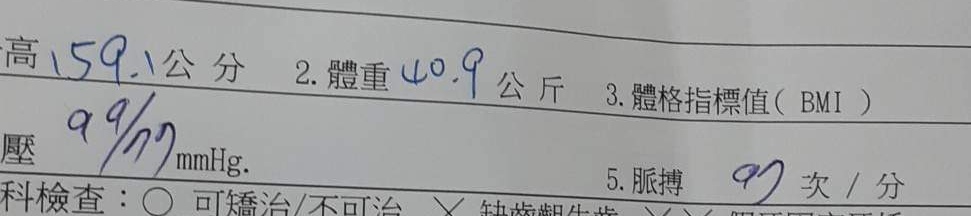 高 159.1 公 分 2.體重 40.9 公 斤 3.體格指標值( BMI )
壓 99/77 mmHg. 5.脈搏 97 次 / 分
科檢查:○ 可矯治/不可治